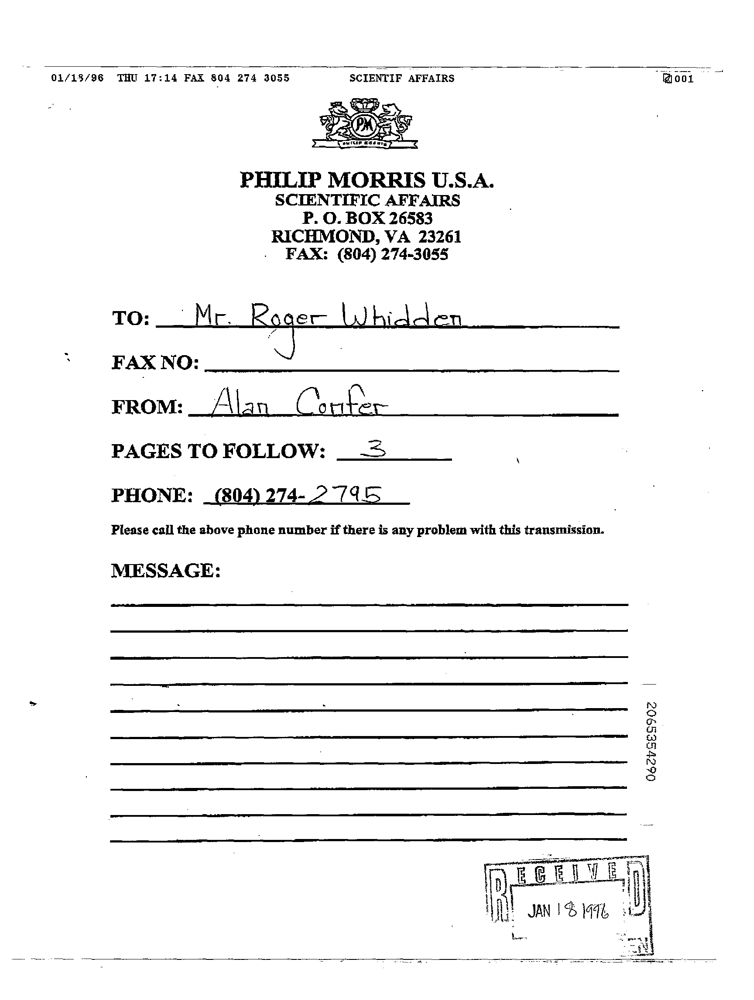 01/18/96 THU 17:14 FAX 804 274 3055 SCIENTIF AFFAIRS 001
PM
PHILIP MORRIS
PHILIP MORRIS U.S.A.
SCIENTIFIC AFFAIRS
P. O. BOX 26583
RICHMOND, VA 23261
FAX: (804) 274-3055
TO: Mr. Roger Whidden
FAX NO:
FROM: Alan Confer
PAGES TO FOLLOW: 3
PHONE: (804) 274-2795
Please call the above phone number if there is any problem with this transmission.
MESSAGE:
2065354290
RECEIVED
JAN 18 1996